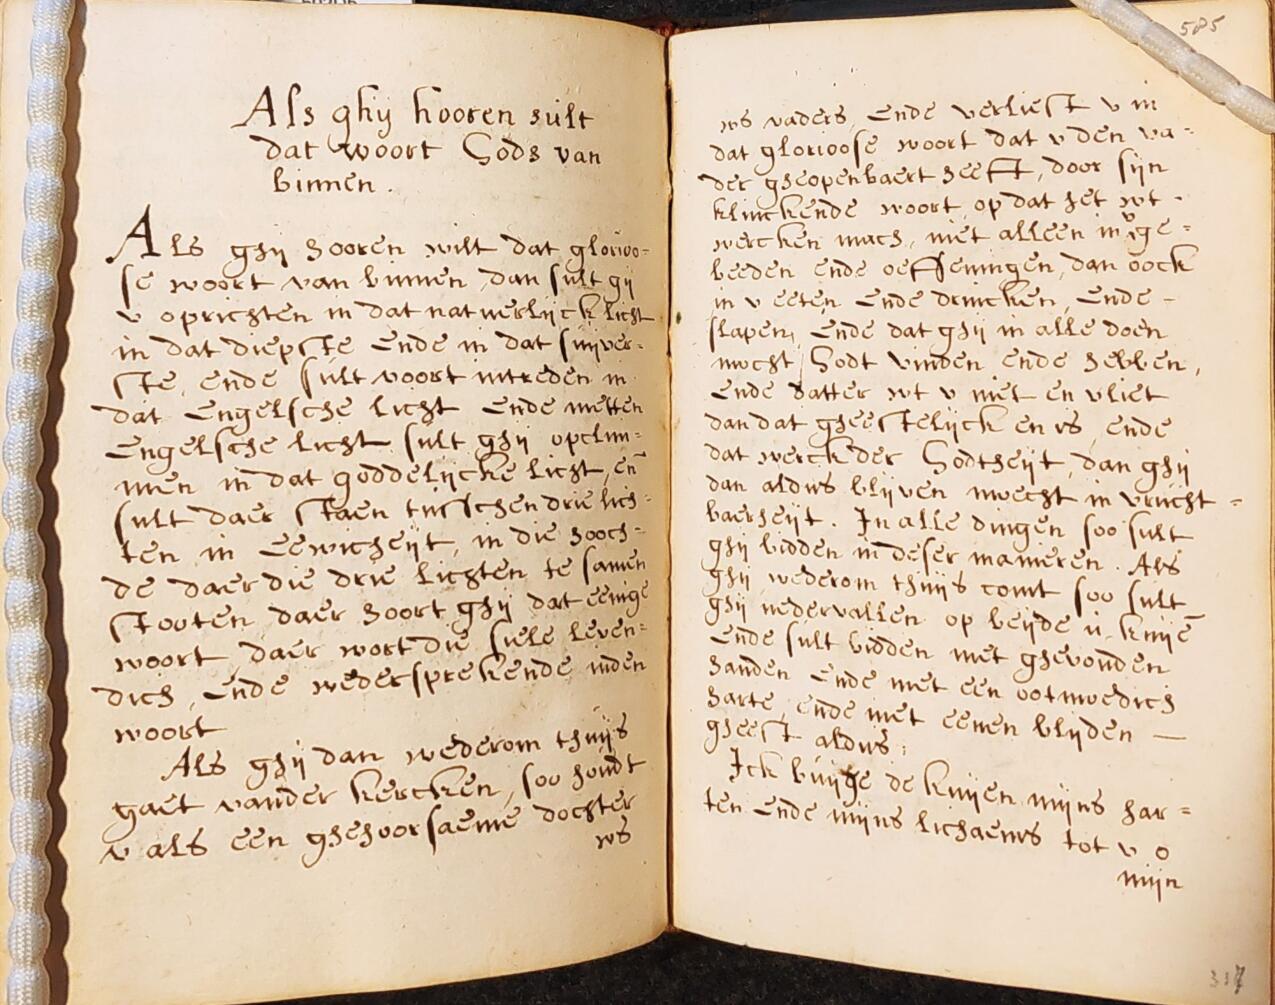 Als ghij hooren sult
dat woort Gods van
binnen.
Als ghij hooren wilt dat glorioo-
se woort van binnen, dan sult gij
v oprichten in dat natuerlijck licht
in dat diepste Ende in dat suijver-
ste, ende sult voort intreden in
dat Engelsche licht Ende metten
Engelsche licht sult ghij opclim-
men in dat goddelijcke licht, en̄
sult daer staen tusschen drie lich-
ten in Eewicheijt, in die hooch-
de daer die drie lichten te samen
stooten daer hoort ghij dat eenige
woort, daer wort die siele leven-
dich, Ende wedersprekende inden
woort
Als ghij dan wederom thuijs
gaet vander kercken, soo houdt
v als een ghehoorsaeme dochter
ws
ws vaders, Ende verliest v in
dat glorioose woort dat v den va-
der gheopenbaert heeft, door sijn
klinckende woort, op dat het wt-
wercken mach, niet alleen in v ge-
beeden ende oeffeningen, dan oock
in v eeten Ende drincken, Ende -
slapen, Ende dat ghij in alle doen
mocht Godt vinden ende hebben,
Ende datter wt v niet en vliet
dan dat gheestelijck en is, ende
dat werck der Godtheijt, dan ghij
dan aldus blijven moecht in vrucht-
baerheijt. In alle dingen soo sult
ghij bidden in deser manieren. Als
ghij wederom thuijs comt soo sult
ghij nedervallen op beijde u knijē
Ende sult bidden met ghevouden
handen Ende met een ootmoedich
harte, en̄de met eenen blijden —
gheest aldus;
Ick buijge de knijen mijns har-
ten Ende mijns lichaems tot v o
mijn
585